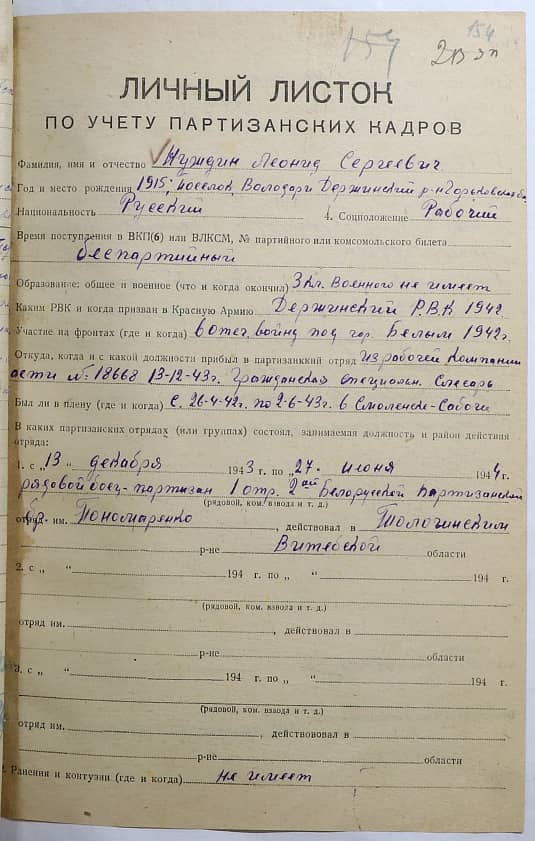 154
154
ЛИЧНЫЙ ЛИСТОК
ПО УЧЕТУ ПАРТИЗАНСКИХ КАДРОВ
Фамилия, имя и отчество Нуждин Леонид Сергеевич
Год и место рождения 1915, поселок Володары Держинский р-н Горьковской об.
Национальность Русский 4. Соцположение Рабочий
Время поступления в ВКП(б) или ВЛКСМ, № партийного или комсомольского билета
беспартийный
Образование: общее и военное (что и когда окончил) 3 кл. Военного не имеет
Каким РВК и когда призван в Красную Армию Держинский РВК 1942
Участие на фронтах (где и когда) в отеч. войну под гор. Белым 1942г.
Откуда, когда и с какой должности прибыл в партизанский отряд из рабочей компании
асти № 18668 13-12-43г. Гражданская специальн. Слесарь
Был ли в плену (где и когда) с. 26-4-42г. по 2-6-43г. в Смоленске
В каких партизанских отрядах (или группах) состоял, занимаемая должность и район действия
отряда:
1. с „13 “ декабря 1943 г. по „27 “ июня 1944 г.
рядовой боец-партизан 1 отр. 2ой Белорусской партизанской
(рядовой, ком. взвода и т. д.)
бр.
отряд им. Пономаренко, действовал в Толочинским
р-не Витебской области
2. с „ “ 194 г. по „ “ 194 г.
(рядовой, ком. взвода и т. д.)
отряд им. , действовал в
р-не области
3. с „ “ 194 г. по „ “ 194 г.
(рядовой, ком. взвода и т. д.)
отряд им. , действововал в
р-не области
Ранения и контузии (где и когда) не имеет